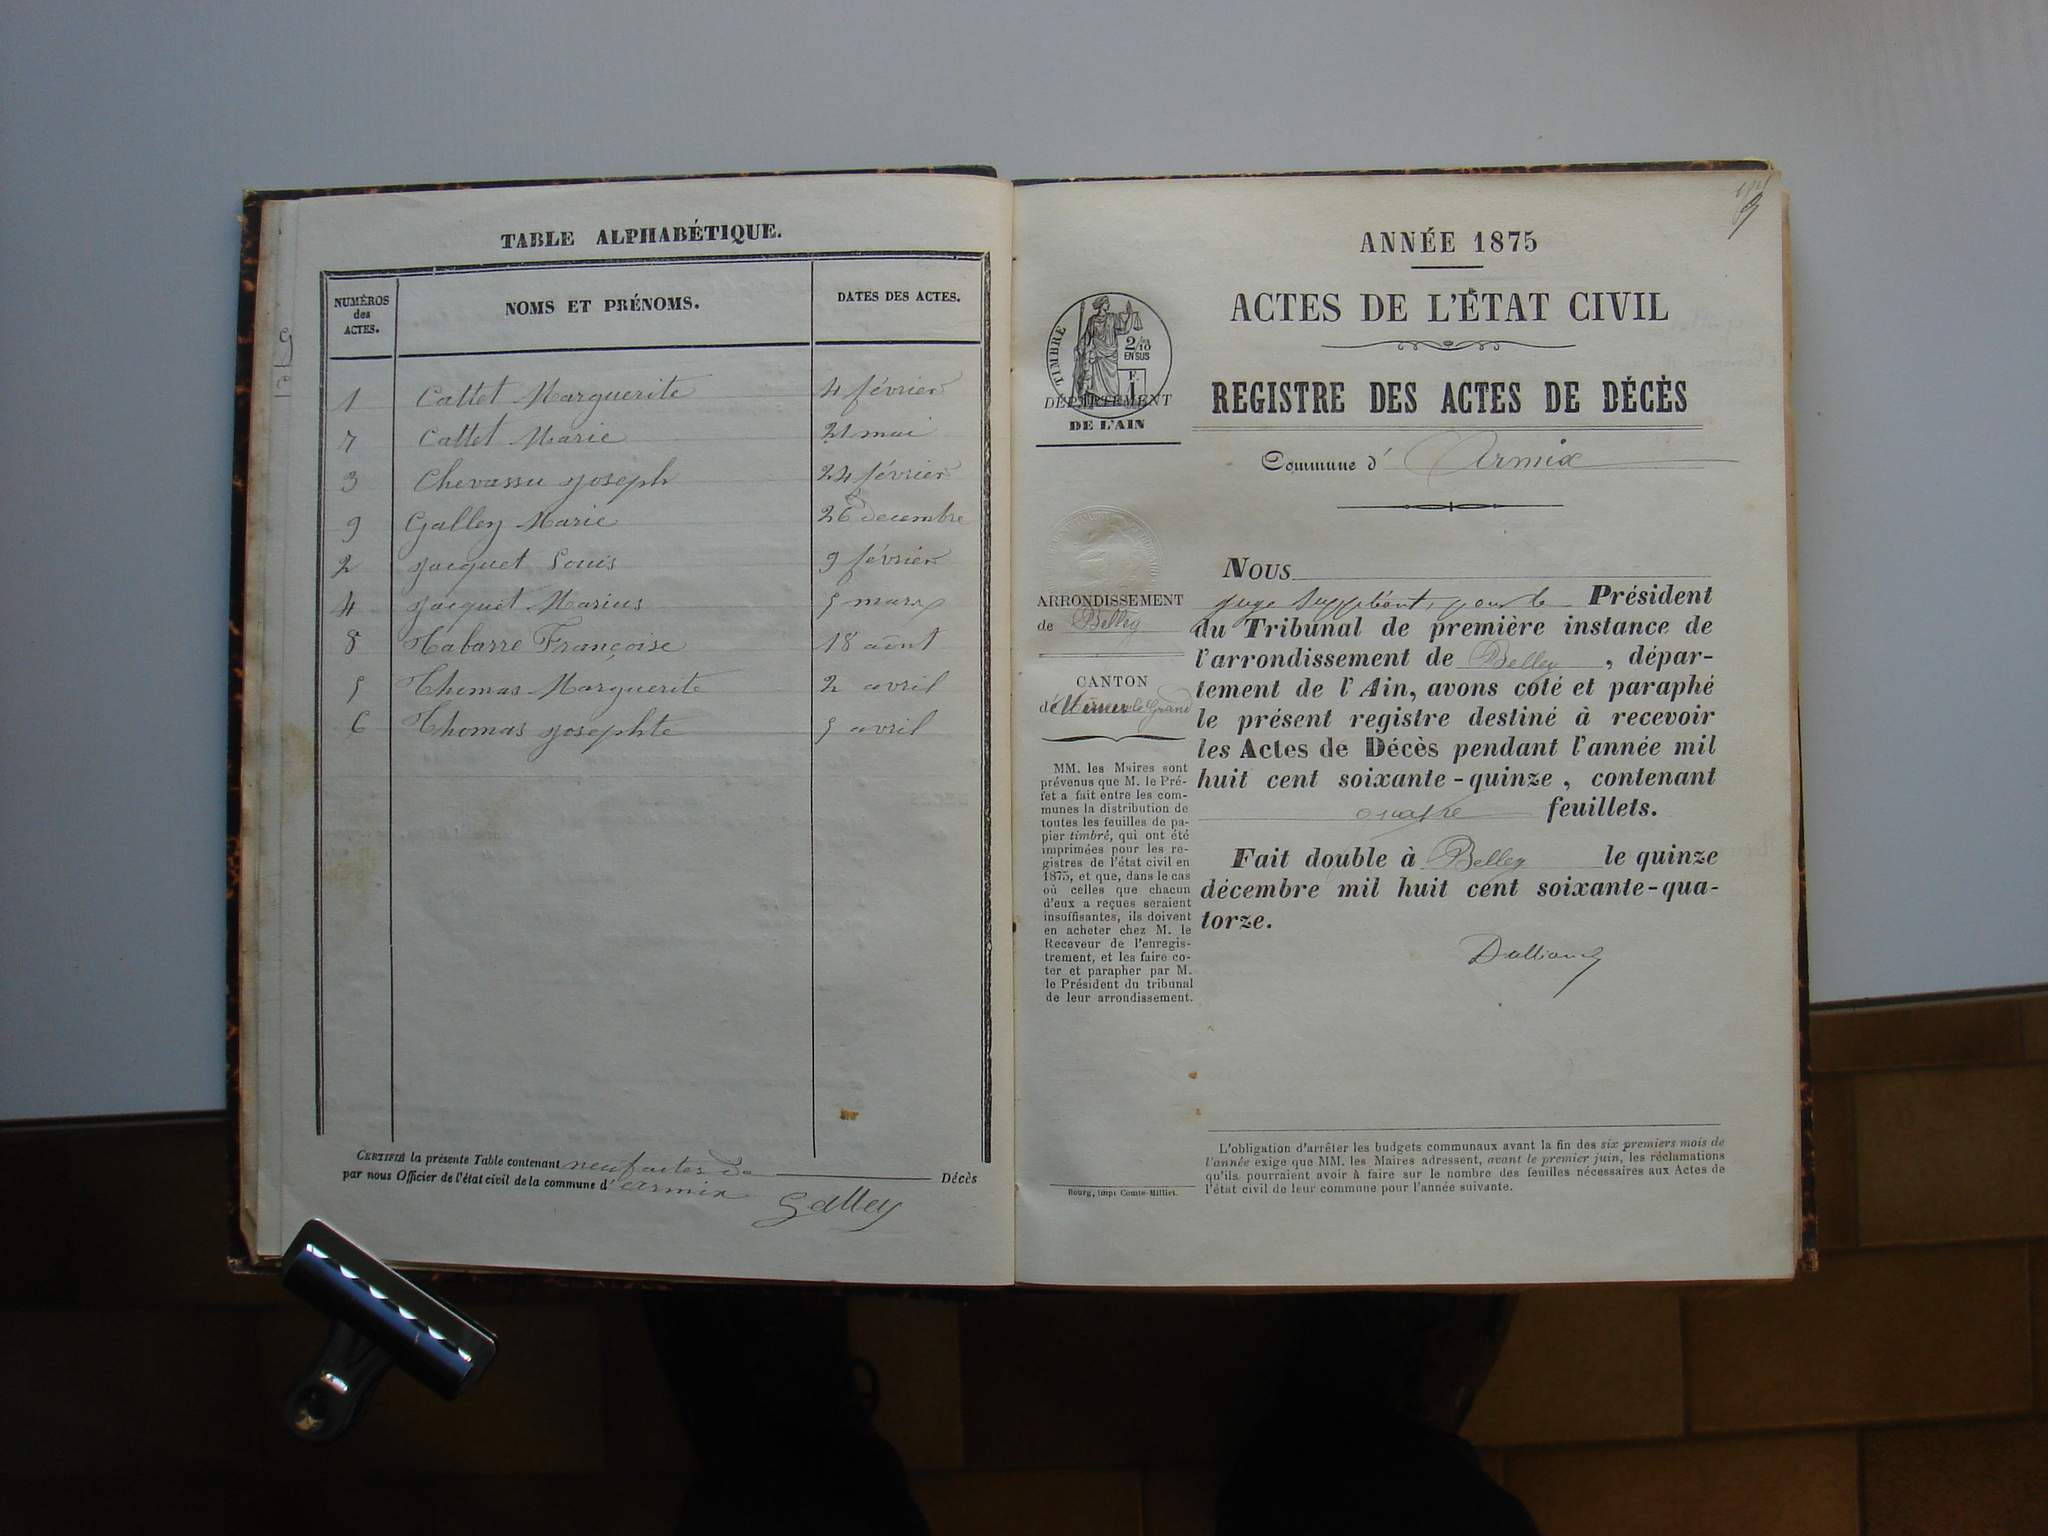 TABLE ALPHABÉTIQUE.
NUMÉROS des ACTES. NOMS ET PRÉNOMS. DATES DES ACTES.
1 Cattet Marguerite 4 février
7 Cattet Marie 21 mai
3 Chevassu Joseph 24 février
9 Galley Marie 26 decembre
2 Jacquet Louis 9 février
4 Jacquet Marius 5 mars
8 Nabarre Françoise 18 août
5 Thomas Marguerite 2 avril
6 Thomas Josephte 5 avril
CERTIFIÉ la présente Table contenant neuf actes de Décès
par nous Officier de l'état civil de la commune d' armix
Galley
ANNÉE 1875
ACTES DE L'ÉTAT CIVIL
REGISTRE DES ACTES DE DÉCÈS
Commune d' Armix
TIMBRE
2/10
EN SUS
F.
1
DÉPARTEMENT
DE L'AIN
ARRONDISSEMENT
de Belley
CANTON
de Virieu le Grand
MM. les Maires sont
prévenus que M. le Pré-
fet a fait entre les com-
munes la distribution de
toutes les feuilles de pa-
pier timbré, qui ont été
imprimées pour les re-
gistres de l'état civil en
1875, et que, dans le cas
où celles que chacun
d'eux a reçues seraient
insuffisantes, ils doivent
en acheter chez M. le
Receveur de l'enregis-
trement, et les faire co-
ter et parapher par M.
le Président du tribunal
de leur arrondissement.
Bourg, impr Comte-Milliet.
NOUS
juge Suppléant, pour le Président
du Tribunal de première instance de
l'arrondissement de Belley, dépar-
tement de l'Ain, avons coté et paraphé
le présent registre destiné à recevoir
les Actes de Décès pendant l'année mil
huit cent soixante-quinze, contenant
quatre feuillets.
Fait double à Belley le quinze
décembre mil huit cent soixante-qua-
torze.
L'obligation d'arrêter les budgets communaux avant la fin des six premiers mois de
l'année exige que MM. les Maires adressent, avant le premier juin, les réclamations
qu'ils pourraient avoir à faire sur le nombre des feuilles nécessaires aux Actes de
l'état civil de leur commune pour l'année suivante.